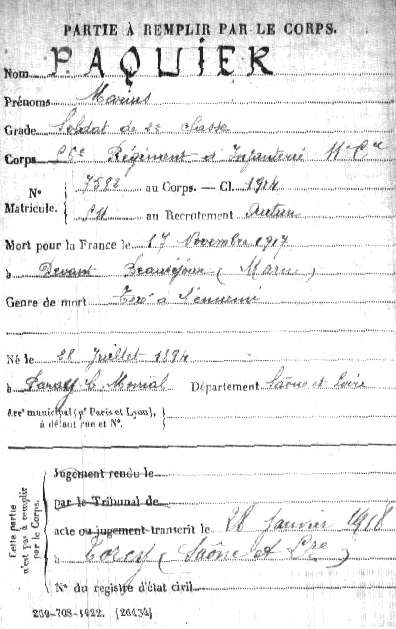 PARTIE À REMPLIR PAR LE CORPS.
Nom PAQUIER
Prénoms Marius
Grade Soldat de 2e classe
Corps Régiment d'Infanterie 11e Cie
N° Matricule. { 7582 au Corps. — Cl. 1914
au Recrutement Autun
Mort pour la France le 17 Novembre 1917
à Devant Beauséjour (Marne)
Genre de mort Tué à l'ennemi
Né le 28 Juillet 1894
à Paray le Monial Département Saône et Loire
Arrt municipal (pr Paris et Lyon),
à défaut rue et N°.
Cette partie
n'est pas à remplir
par le Corps.
Jugement rendu le
par le Tribunal de
acte ou jugement transcrit le 28 Janvier 1918
à Torcy (Saône et Lre)
N° du registre d'état civil
259-708-1922. [26434]